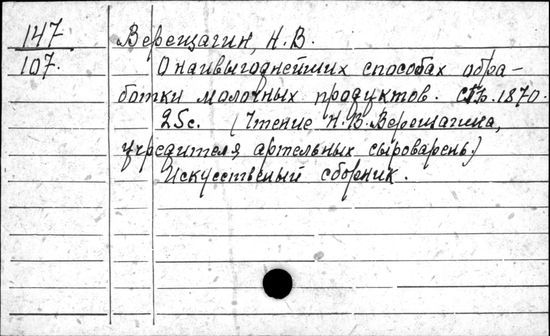 147. Верещагин, Н.В.
107. О наивыгоднейших способах обра-
ботки молочных продуктов. СПб. 1870.
25с. (Чтение Н.В. Верещагина,
учредителя артельных сыроварень.)
Искусственый сборник.